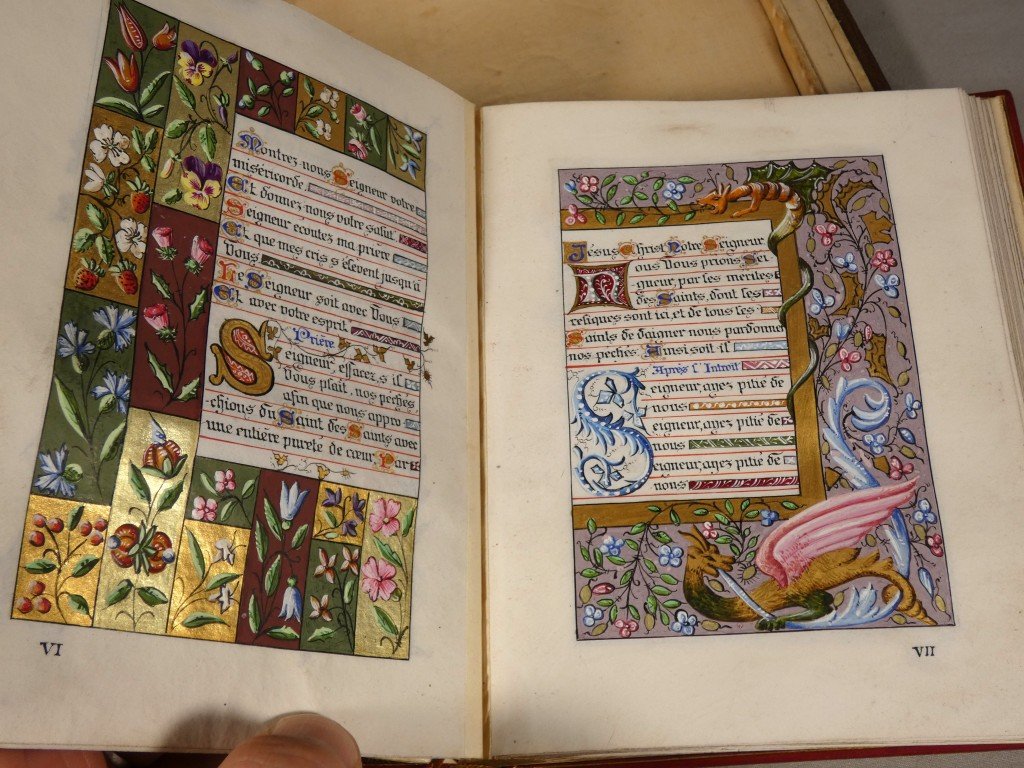 Montrez, nous Seigneur votre
miséricorde,
Et donnez, nous votre salut.
Seigneur ecoutez ma prière
Et que mes cris s'élèvent jusqu'à
Vous
Le Seigneur soit avec Vous
Et avec votre esprit
Prière
Seigneur effacez, s'il
Vous plait, nos péchés
afin que nous appro
chions du Saint des Saints avec
une entière pureté de cœur Par
VI
Jésus Christ Notre Seigneur
Nous Vous prions Sei
gueur, par les mérites
des Saints, dont les
reliques sont ici, et de tous les
Saints de daigner nous pardonner
nos péchés Ainsi soit il
Après l'Introit
Seigneur, ayez pitié de
nous
Seigneur, ayez pitié de
nous
Seigneur, ayez pitié de
nous
VII